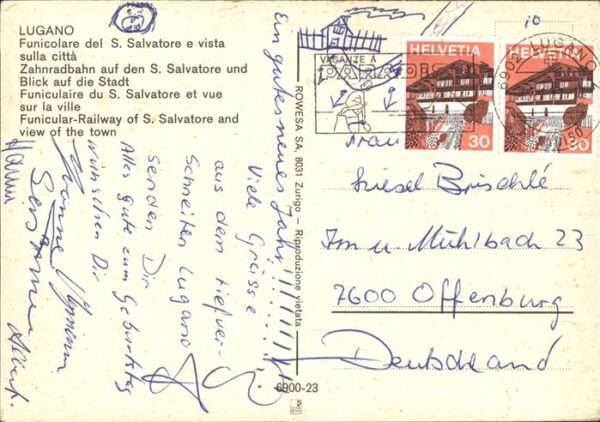 LUGANO
Funicolare del S. Salvatore e vista
sulla città
Zahnradbahn auf den S. Salvatore und
Blick auf die Stadt
Funiculaire du S. Salvatore et vue
sur la ville
Funicular-Railway of S. Salvatore and
view of the town
Ein gutes neues Jahr!!!!!!!!!
Viele Grüsse
aus dem tiefver-
schneiten Lugano
senden Dir
Alles gute zum Geburtstag
wünschen Dir
Yvonne
ROWESA SA, 8031 Zurigo – Riproduzione vietata
6900-23
10
VACANZE A
HELVETIA
30
HELVETIA
30
6902 LUGANO
Frau
Liesel Brischlé
Im u. Mühlbach 23
7600 Offenburg
Deutschland